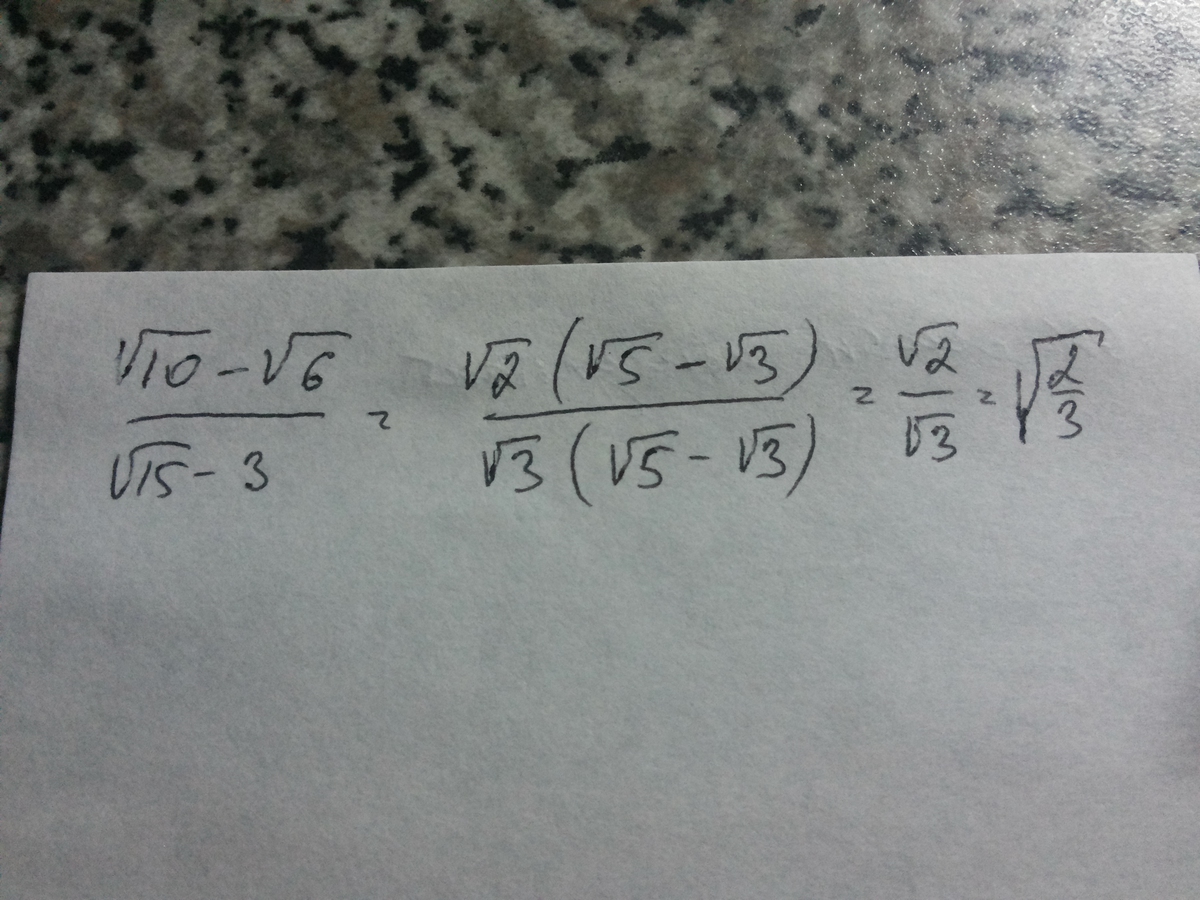 (√10 - √6)/(√15 - 3) = (√2 (√5 - √3))/(√3 (√5 - √3)) = √2/√3 = √(2/3)